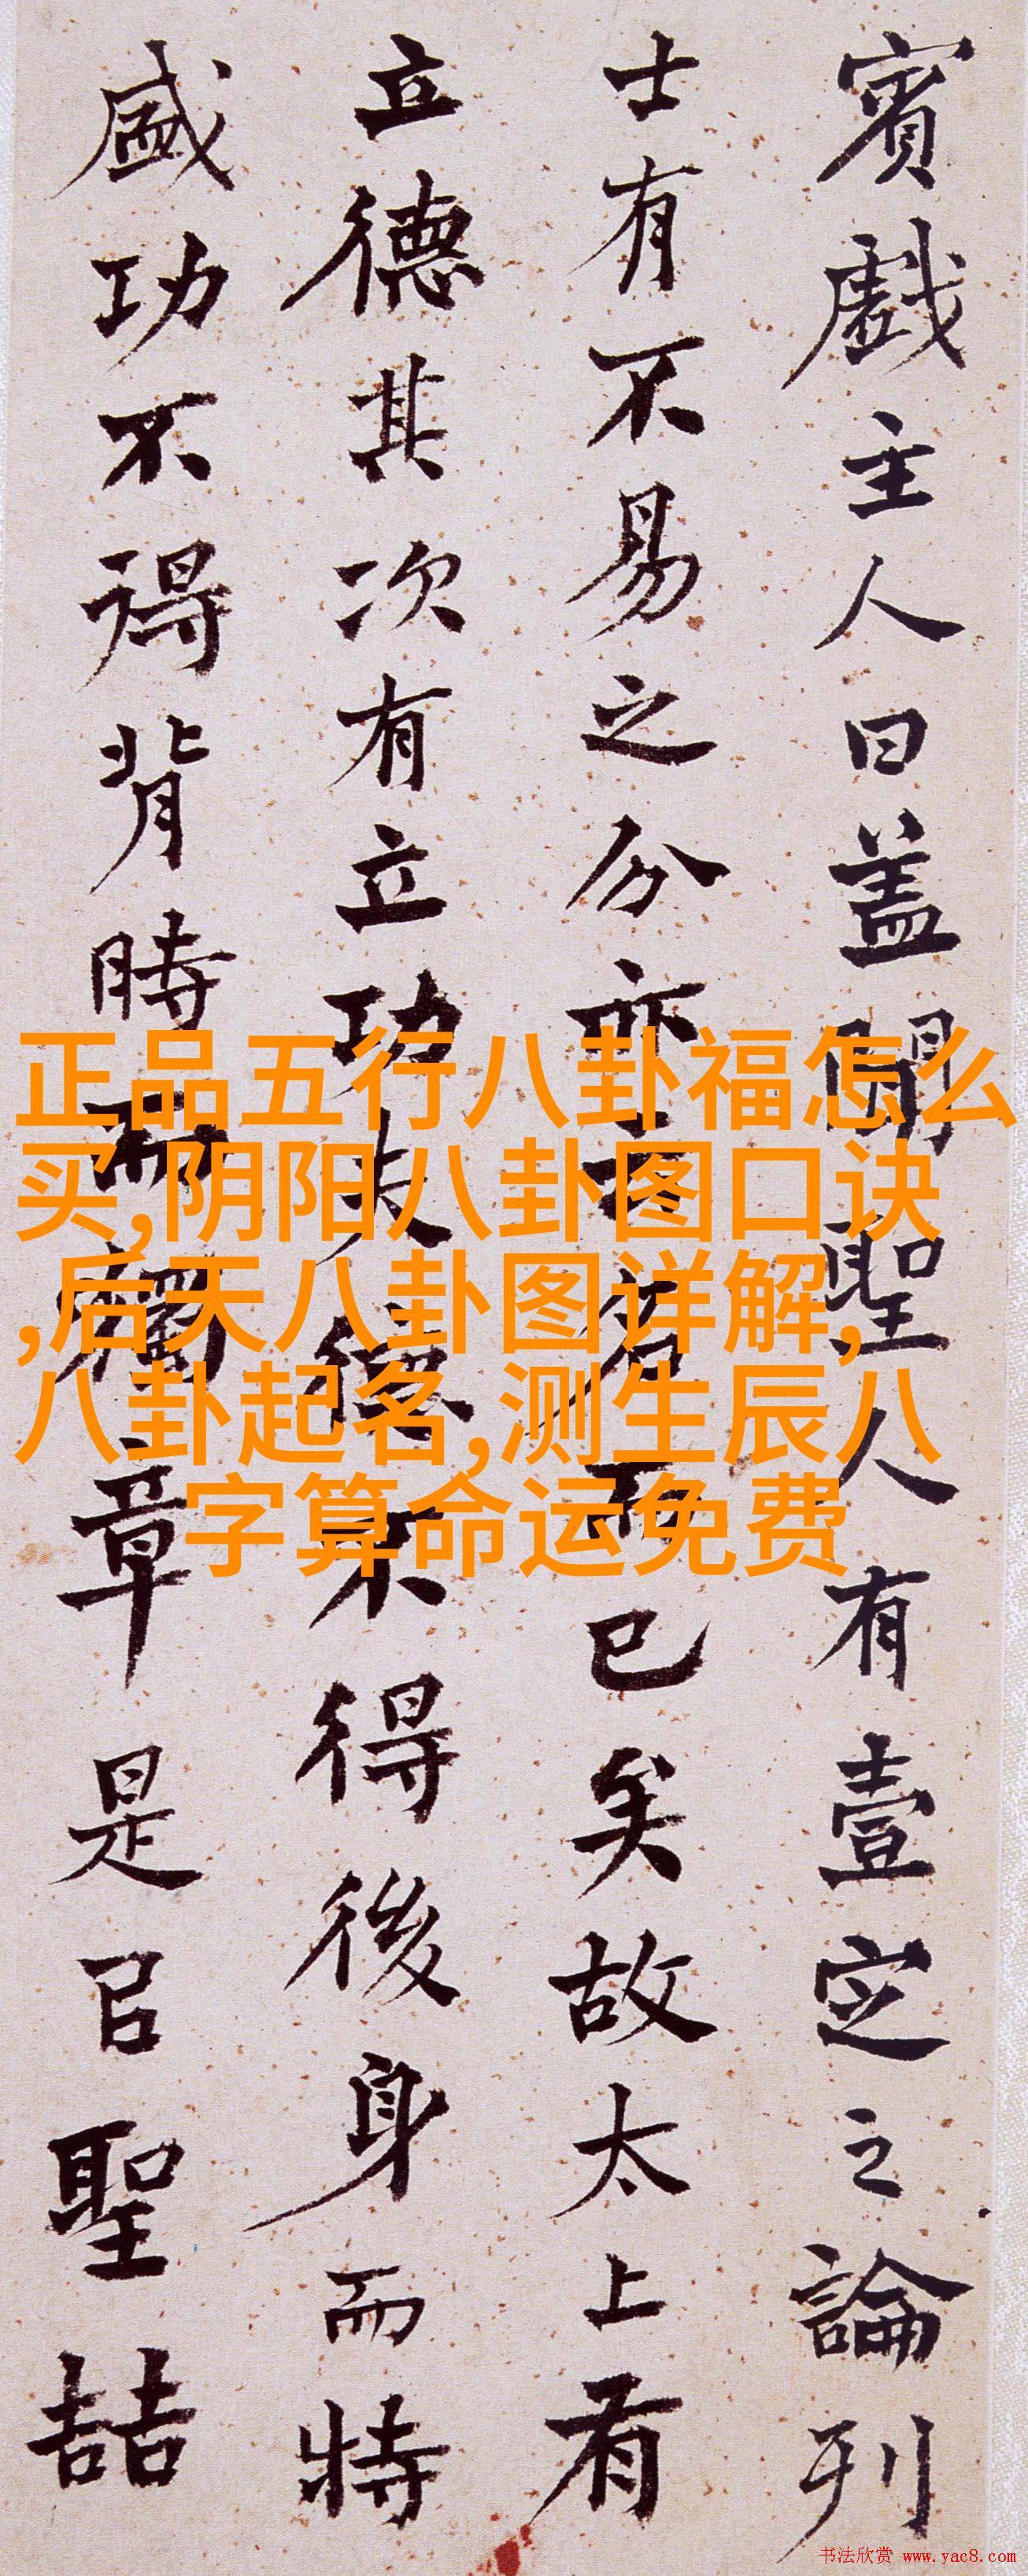 賓戲主人曰盖聞聖人有壹定之論列
士有不易之分亦云名而已矣故太上有
立德其次有立功夫德不得後身而特
盛功不得背時而獨章是㠯聖喆
正品五行八卦福怎么
买,阴阳八卦图口诀
,后天八卦图详解,
八卦起名,测生辰八
字算命运免费
书法欣赏 www.yac8.com